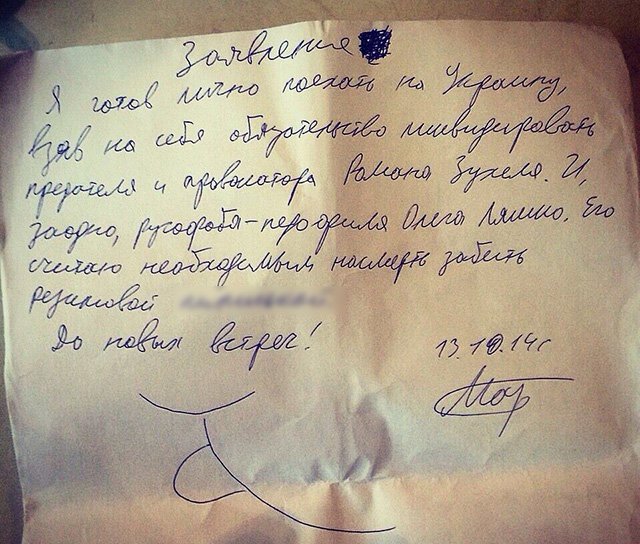 Заявление
Я готов лично поехать на Украину,
взяв на себя обязательство ликвидировать
предателя и провокатора Романа Зухеля. И,
заодно, русофоба-педофила Олега Ляшко. Его
считаю необходимым насмерть забить
резиновой
До новых встреч!
13.10.14г